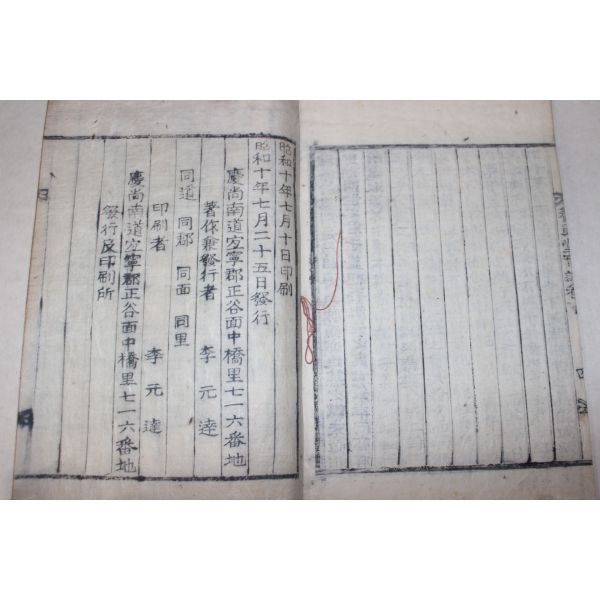 昭和十年七月十日印刷
昭和十年七月二十五日發行
慶尚南道宜寧郡正谷面中橋里七一六番地
著作兼發行者 李元達
同道 同郡 同面 同里
印刷者 李元達
慶尚南道宜寧郡正谷面中橋里七一六番地
發行及印刷所